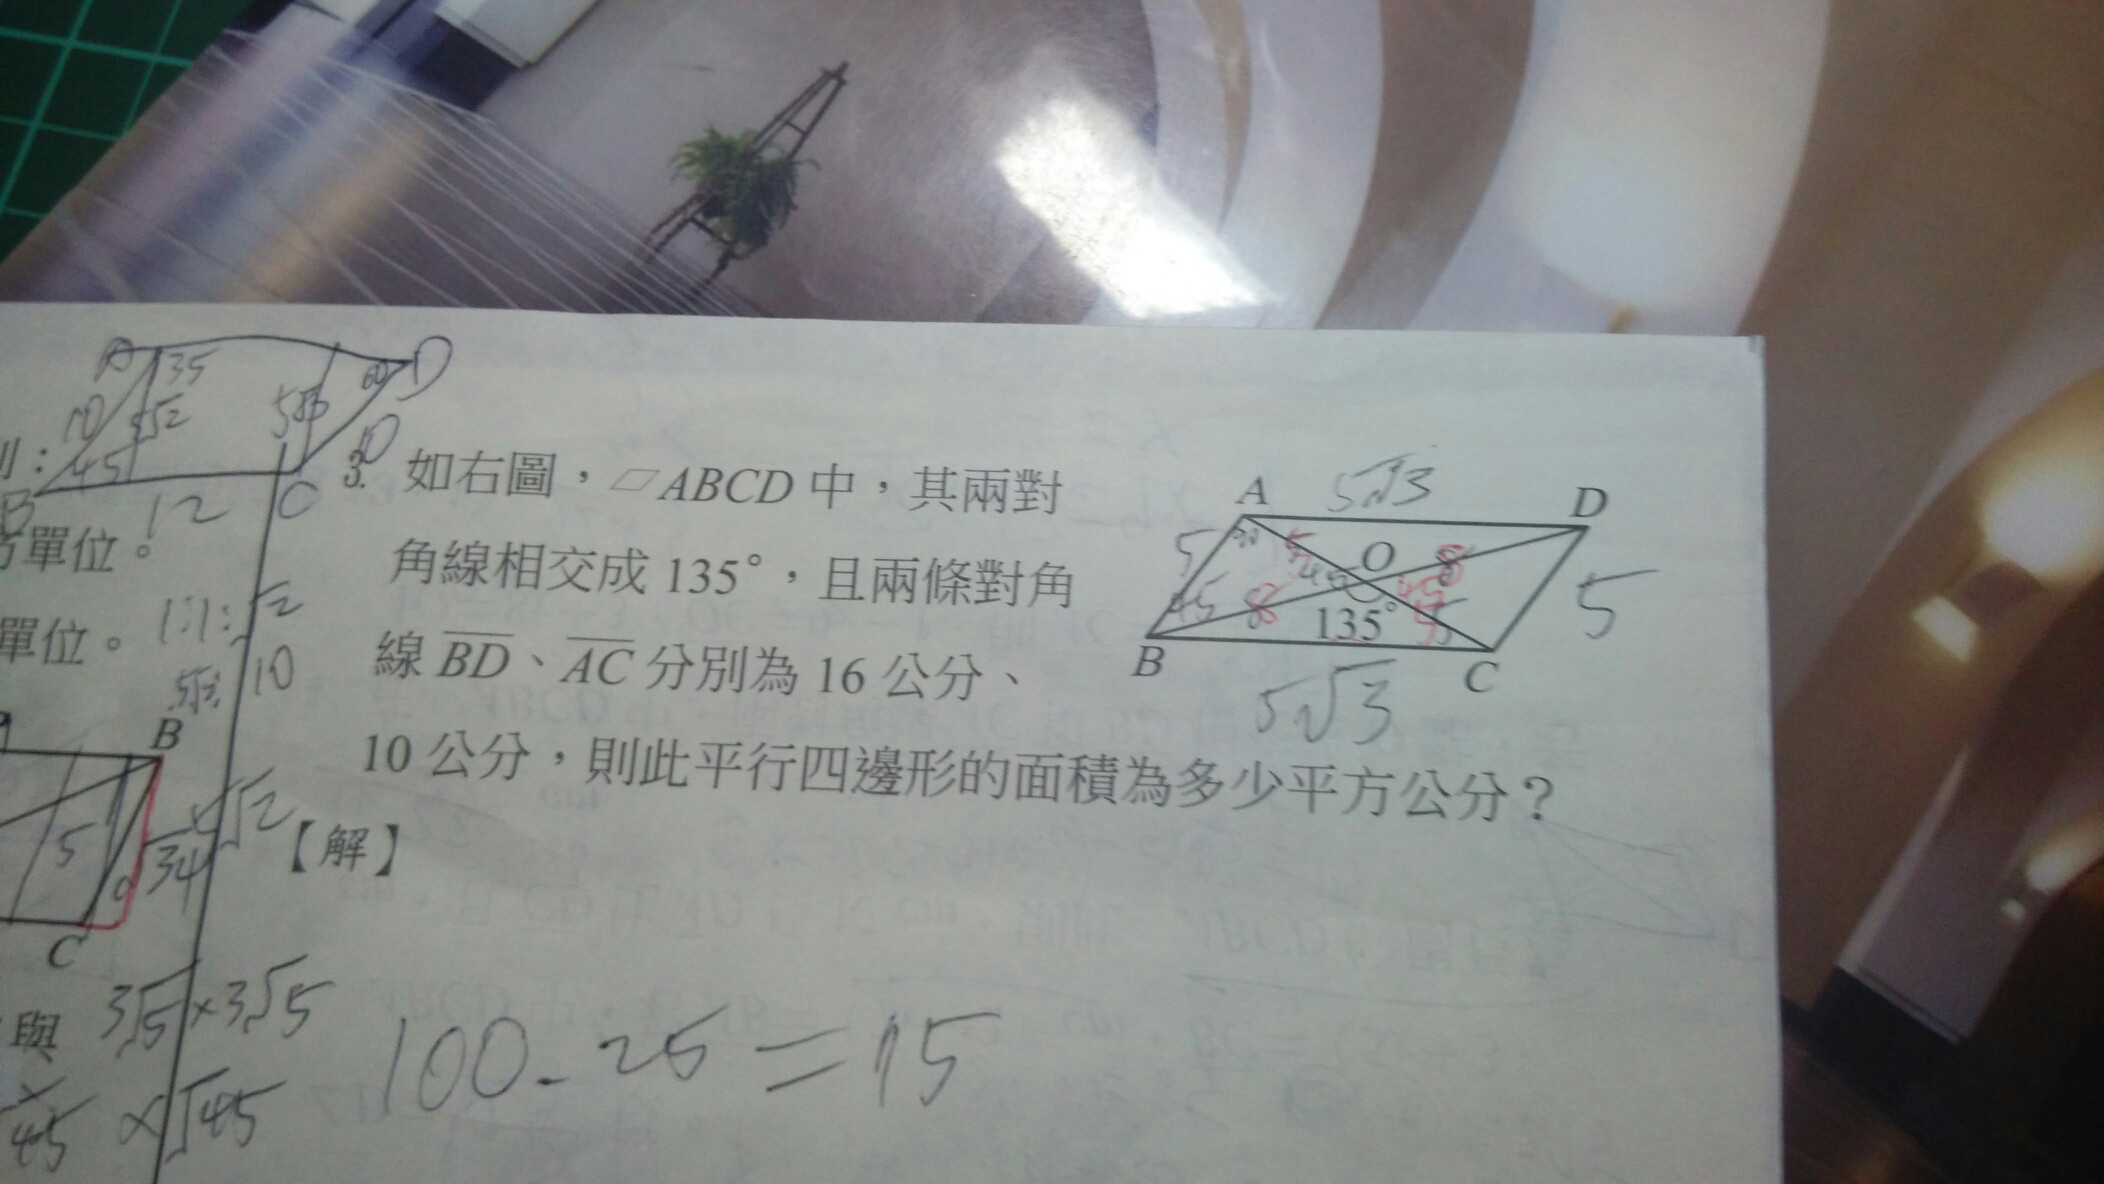 A 35 D
60
10 5√2 5√3 10
45
B 12 C
別：
方單位。
單位。 1:1:√2
5√2 10
B
5
√34
C
3√5×3√5
與
45 √45
3. 如右圖，▱ABCD 中，其兩對
角線相交成 135°，且兩條對角
線 BD、AC 分別為 16 公分、
10 公分，則此平行四邊形的面積為多少平方公分？
【解】
100-25=15
A 5√3 D
5 90 5 45 O 8
45 8 135° 45 5 5
B C
5√3